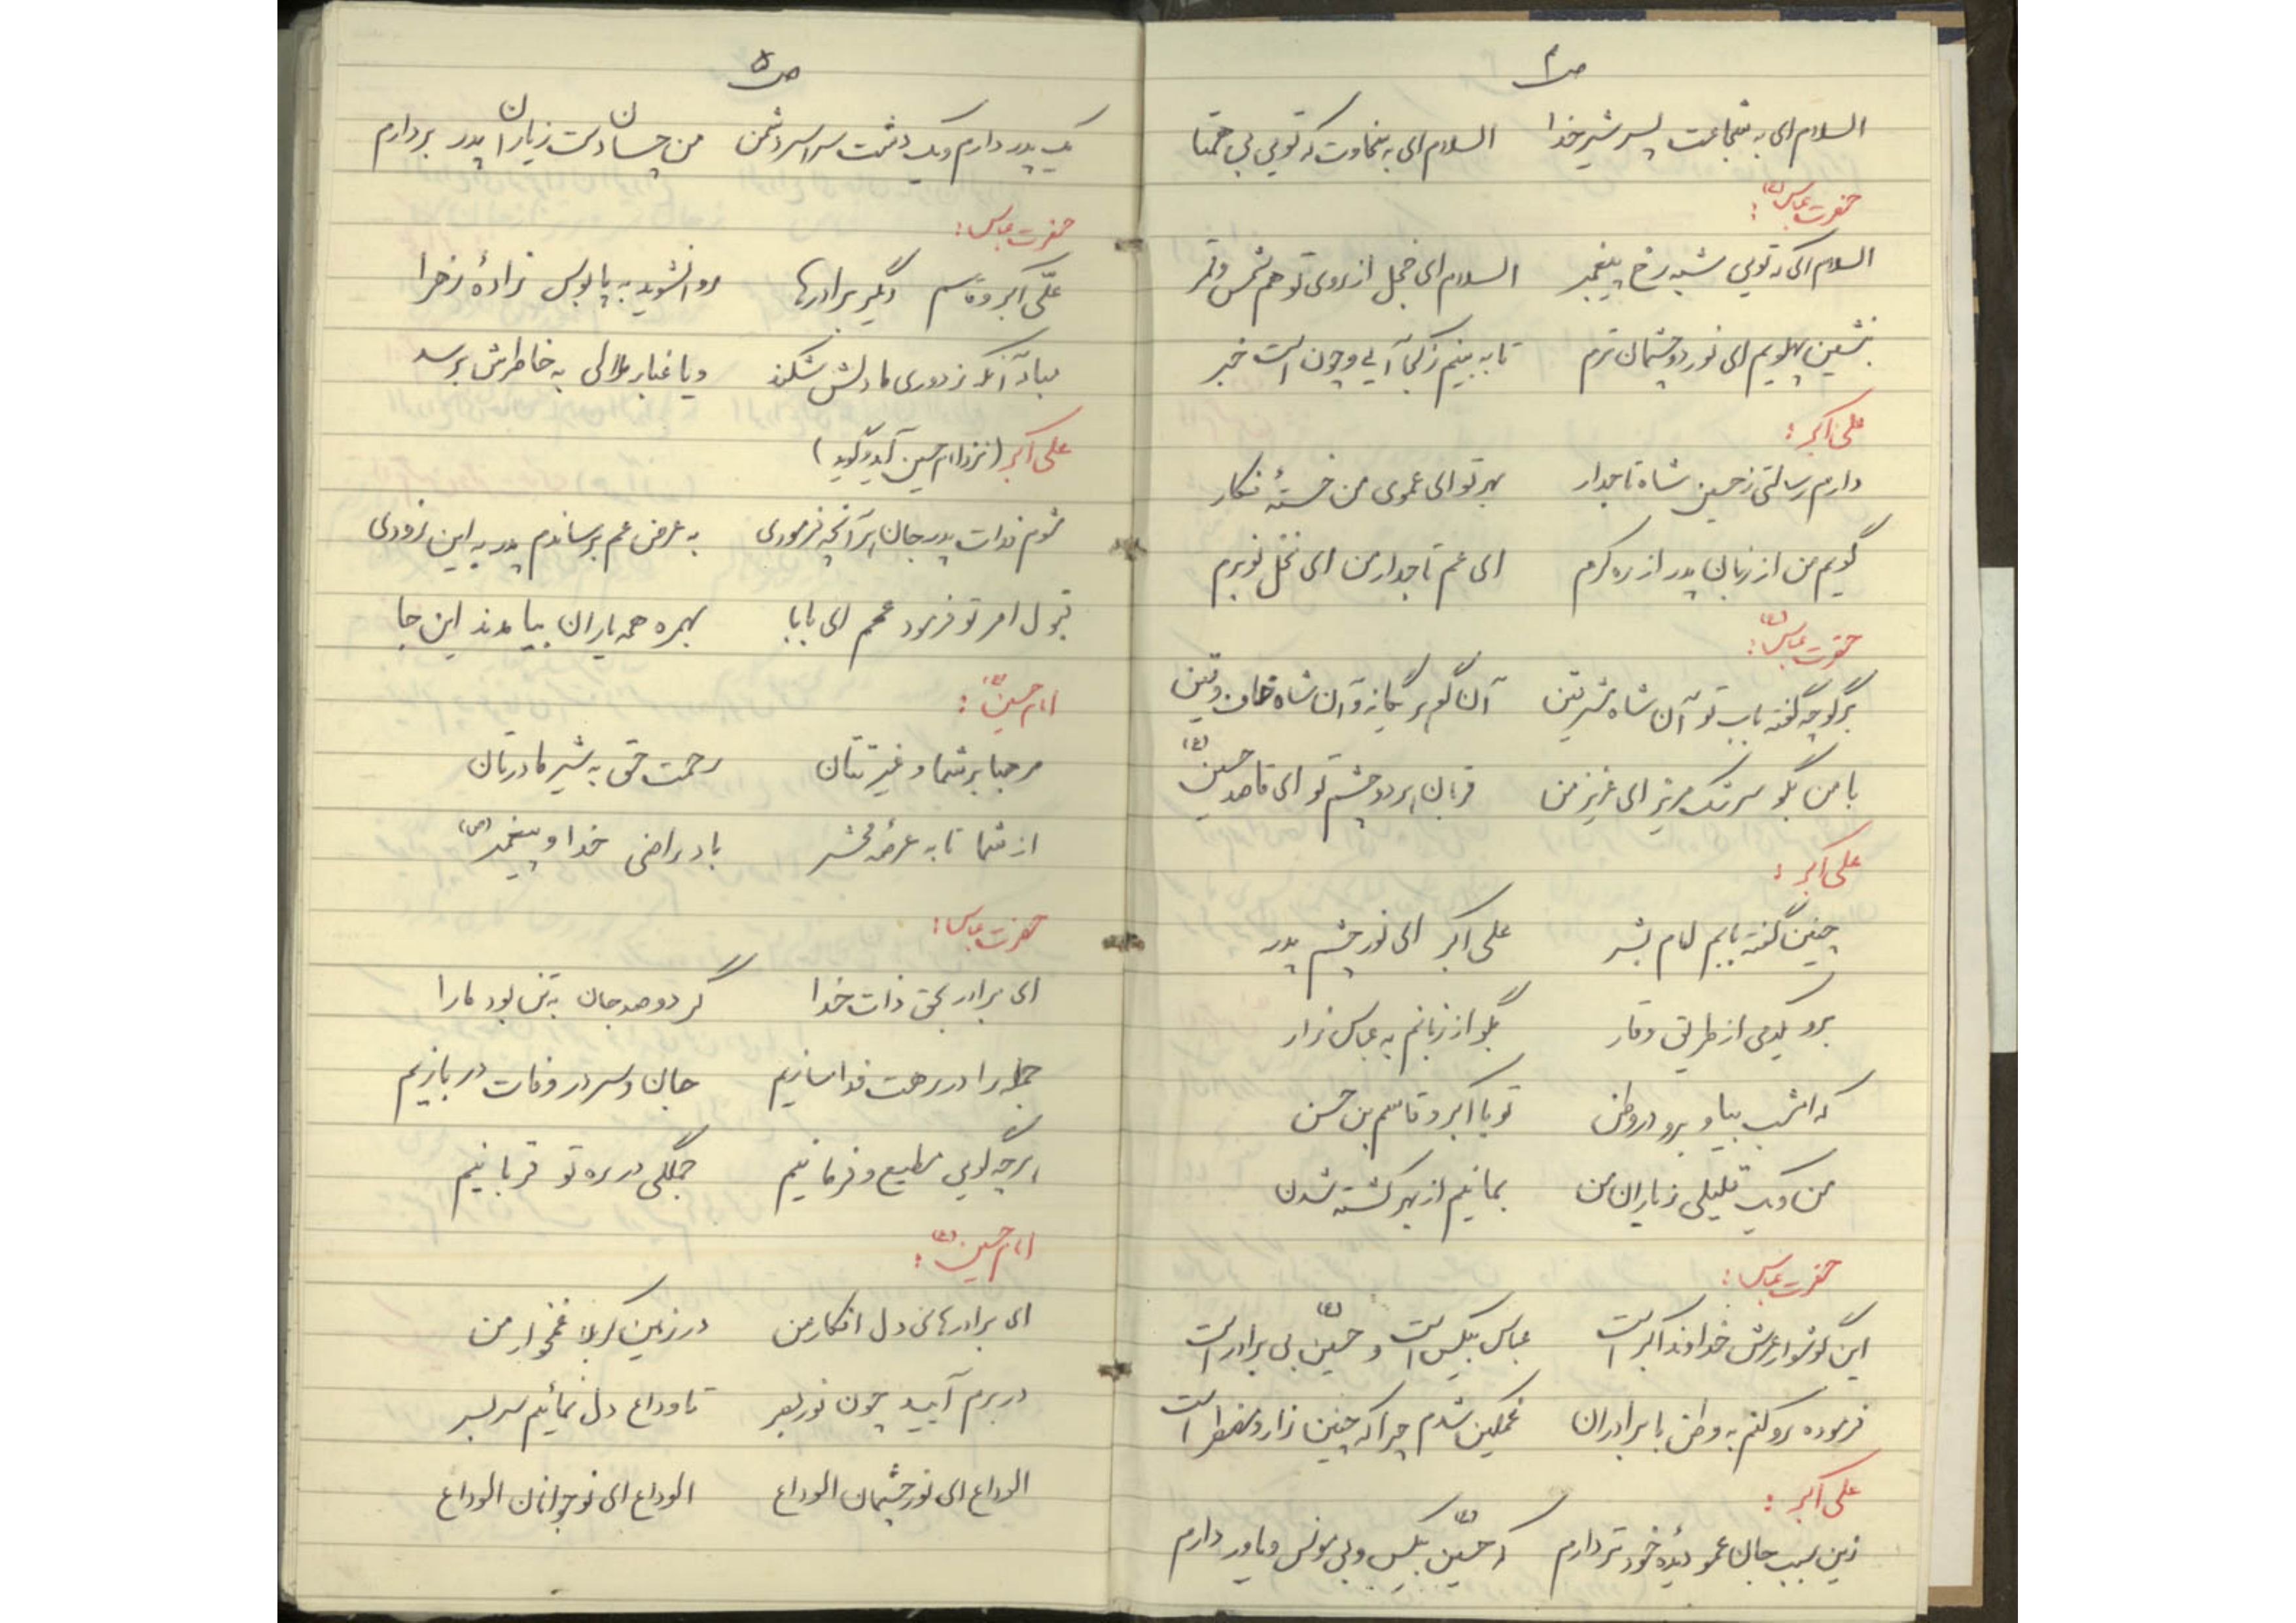 ص ۴
السلام ای به شجاعت پسر شیر خدا السلام ای به سخاوت که تویی بی همتا
حضرت عباس (ع):
السلام ای که تویی شبیه رخ پیغمبر السلام ای خجل از روی تو هم شمس و قمر
بنشین پهلویم ای نور دو چشمان ترم تا به بینم ز کجا آیی و چون است خبر
علی اکبر:
دارم رسالتی ز حسین شاه تاجدار بهر تو ای عموی من خستهٔ فکار
گویم من از زبان پدر از ره کرم ای عم تاجدار من ای نخل نوبرم
حضرت عباس (ع):
برگو چه گفته باب تو آن شاه مشرقین آن گوهر یگانه و آن شاه خافقین
با من بگو سرشک مریز ای عزیز من قربان هر دو چشم تو ای قاصد حسین (ع)
علی اکبر:
چنین گفته بابم امام بشر علی اکبر ای نور چشم پدر
برو یکدمی از طریق وقار بگو از زبانم به عباس زار
که امشب بیا و برو در وطن تو با اکبر و قاسم بن حسن
من و یک قلیلی ز یاران من بمانیم از بهر کشته شدن
حضرت عباس:
این گوشوار عرش خداوند اکبر است عباس بیکس است و حسین (ع) بی برادر است
فرموده رو کنم به وطن با برادران غمگین شدم چرا که چنین زار و مضطر است
علی اکبر:
زین سبب جان عمو دیدهٔ خود تر دارم که حسین (ع) بیکس و بی مونس و یاور دارم
ص ۵
یک پدر دارم و یک دشت سراسر دشمن من چسان دست ز یاران پدر بردارم
حضرت عباس:
علی اکبر و قاسم دگر برادرها روا نشوید به پابوس زادهٔ زهرا
مباد آنکه ز دوری ما دلش شکند و یا غبار ملالی به خاطرش برسد
علی اکبر (نزد امام حسین آید و گوید)
شوم فدات پدر جان هر آنچه فرمودی به عرض عم برساندم پدر به این زودی
قبول امر تو فرمود عمم ای بابا بهمره همه یاران بیامدند این جا
امام حسین (ع):
مرحبا بر شما و غیرتتان رحمت حق به شیر مادرتان
از شما تا به عرصهٔ محشر باد راضی خدا و پیغمبر (ص)
حضرت عباس:
ای برادر بحق ذات خدا گر دو صد جان به تن بود ما را
جمله را در رهت فدا سازیم جان و سر در وفات در بازیم
هر چه گویی مطیع و فرمانیم جملگی در ره تو قربانیم
امام حسین (ع):
ای برادرهای دل افکار من در زمین کربلا غمخوار من
در برم آیید چون نور بصر تا وداع دل نمائیم سر بسر
الوداع ای نور چشمان الوداع الوداع ای نوجوانان الوداع